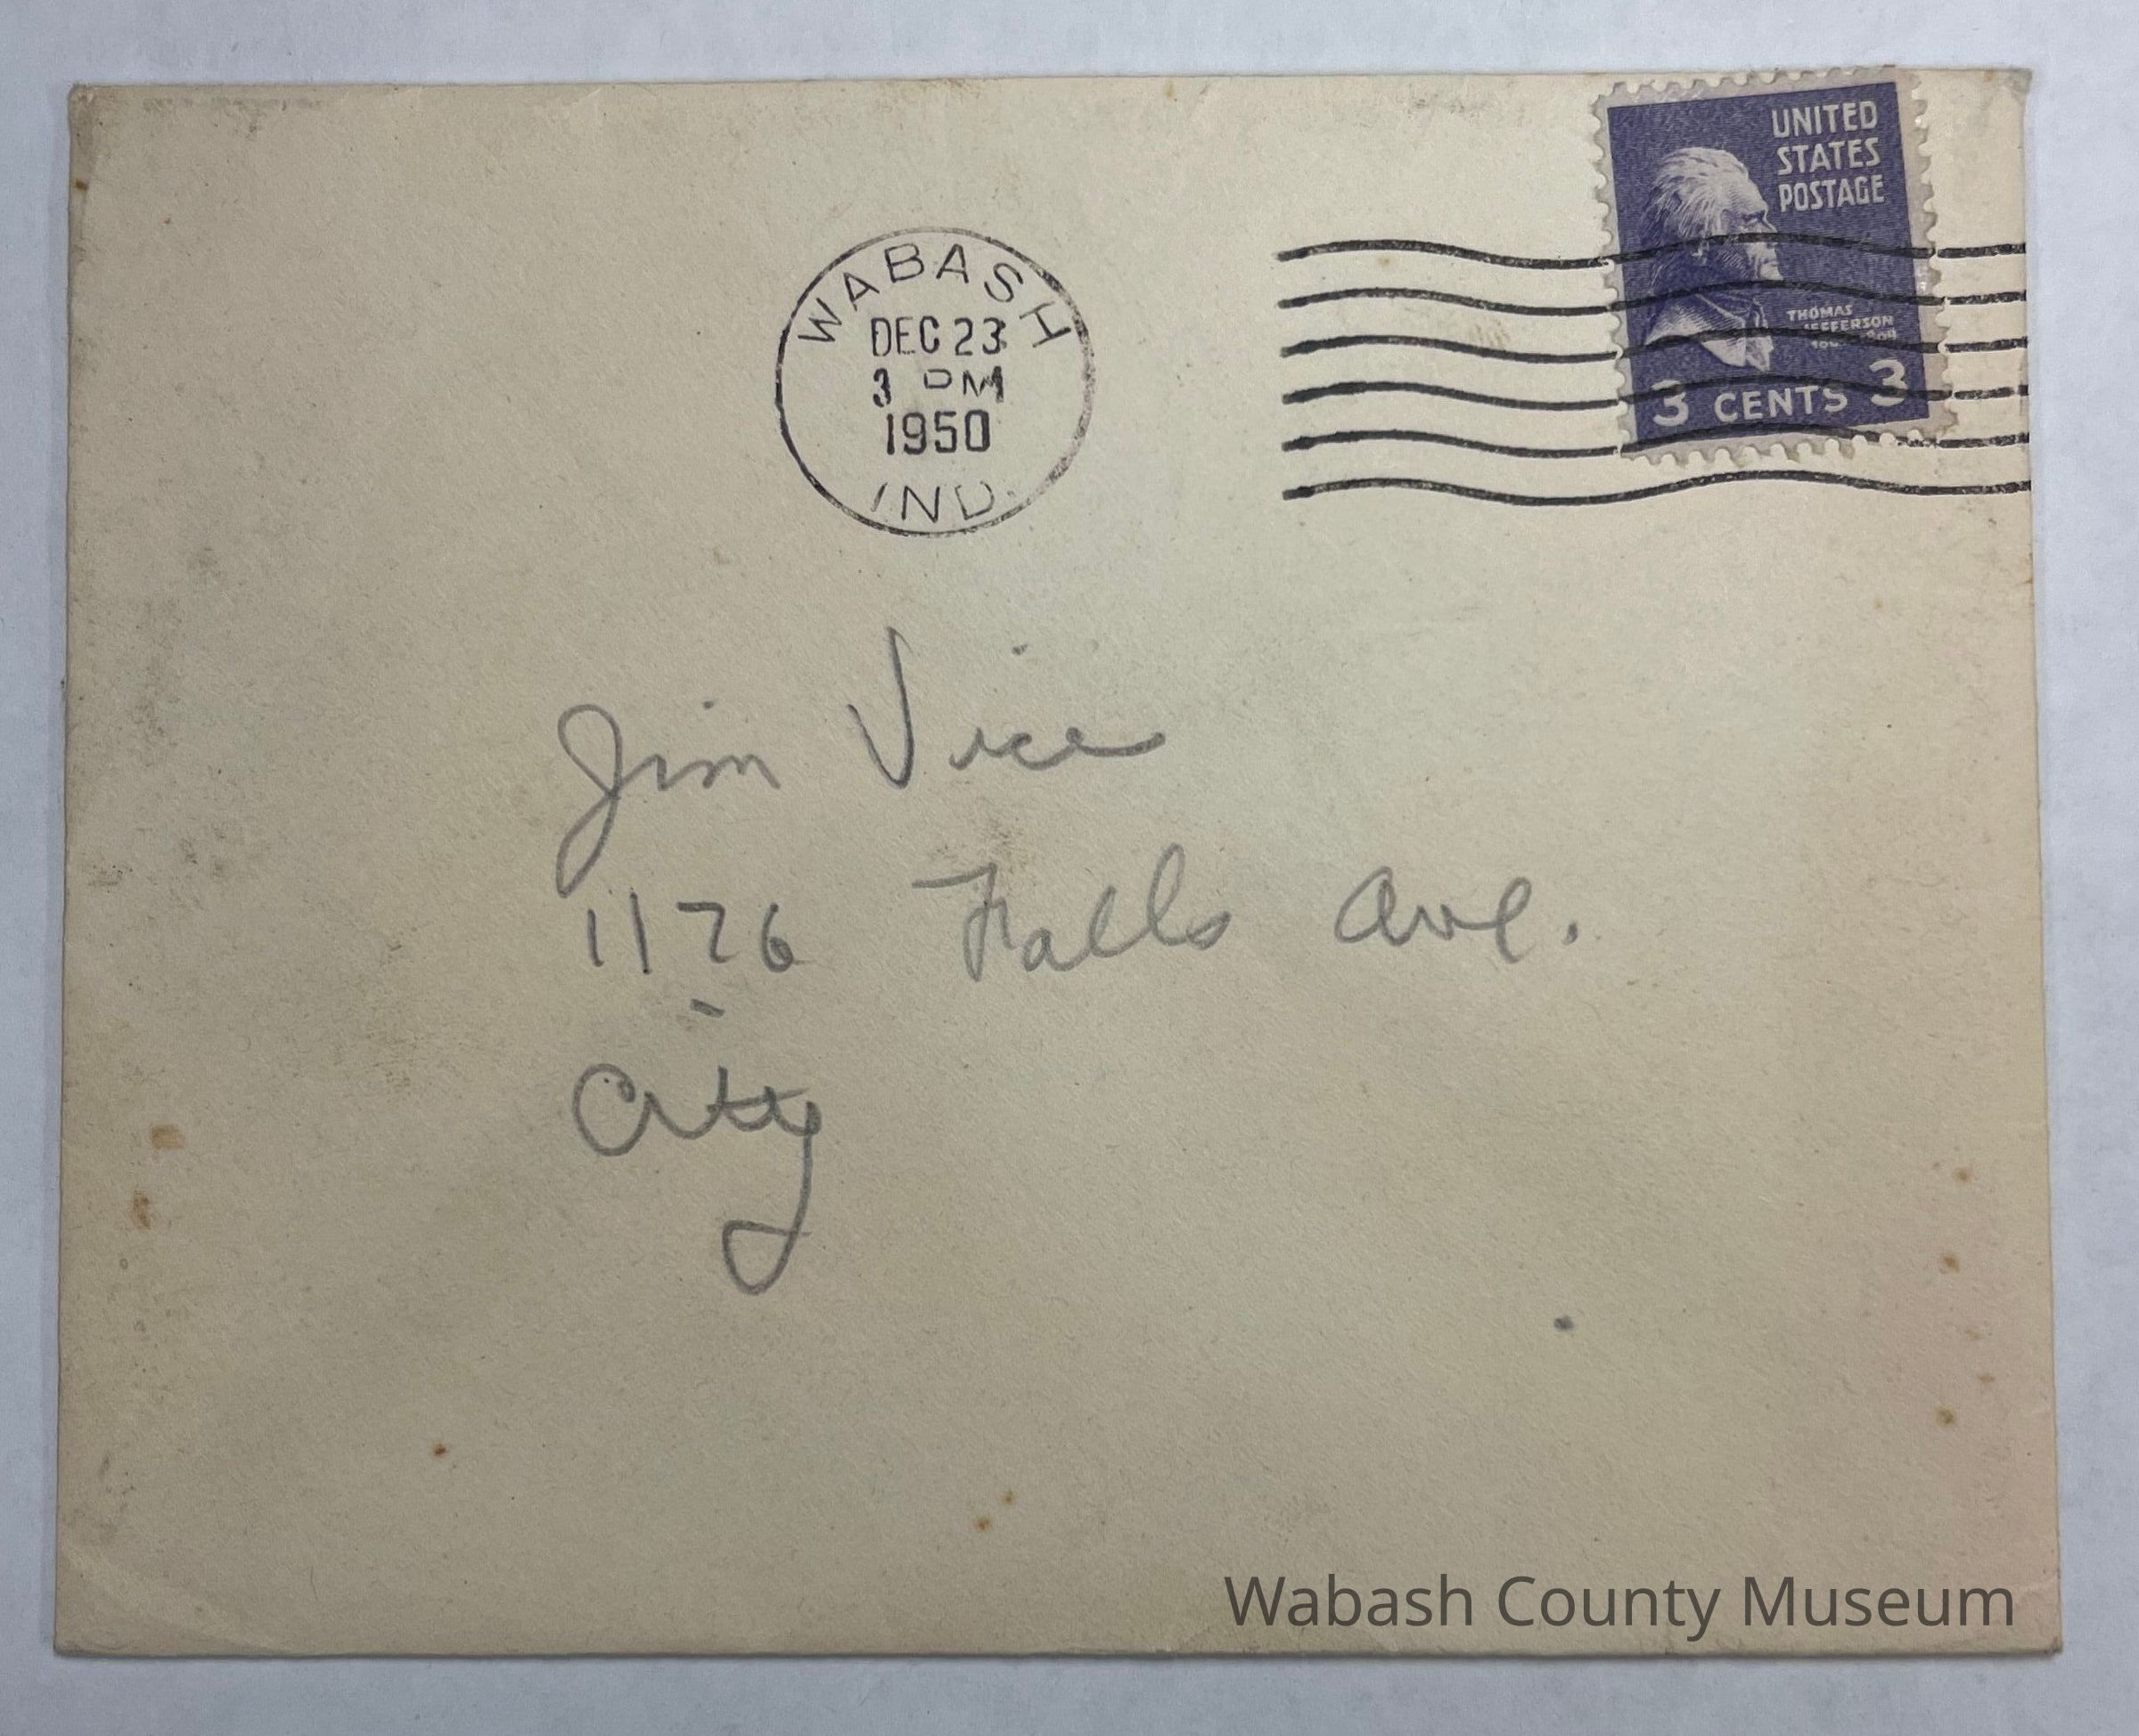 WABASH
DEC 23
3 PM
1950
IND.
UNITED
STATES
POSTAGE
THOMAS
JEFFERSON
3 CENTS 3
Jim Vice
1176 Falls Ave.
City
Wabash County Museum